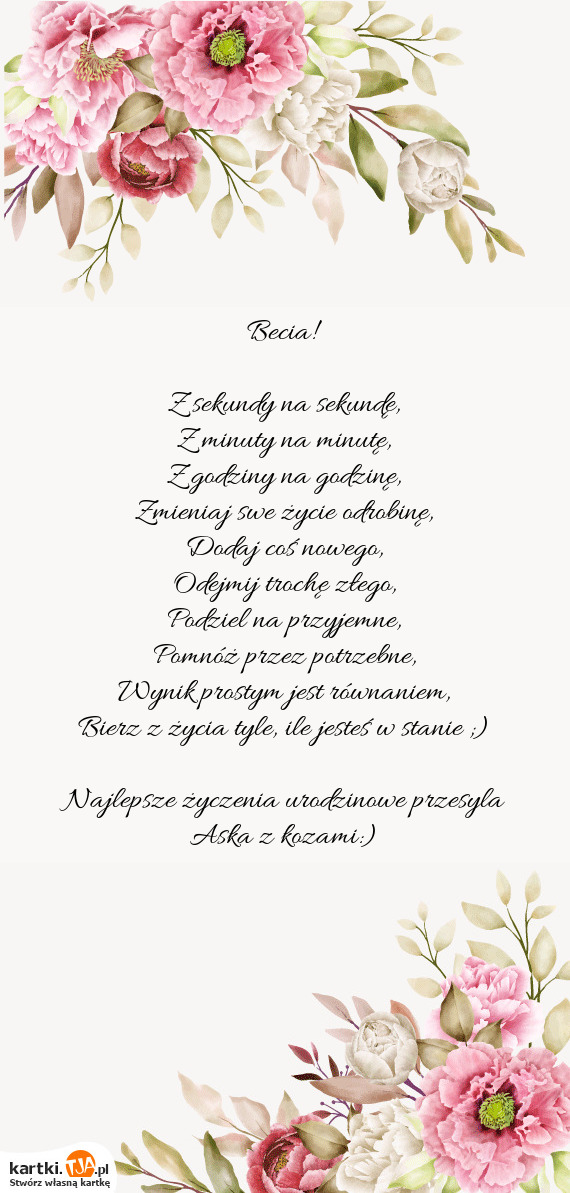 Becia!
Z sekundy na sekundę,
Z minuty na minutę,
Z godziny na godzinę,
Zmieniaj swe życie odrobinę,
Dodaj coś nowego,
Odejmij trochę złego,
Podziel na przyjemne,
Pomnóż przez potrzebne,
Wynik prostym jest równaniem,
Bierz z życia tyle, ile jesteś w stanie ;)
Najlepsze życzenia urodzinowe przesyla
Aska z kozami:)
kartki.TJA.pl
Stwórz własną kartkę